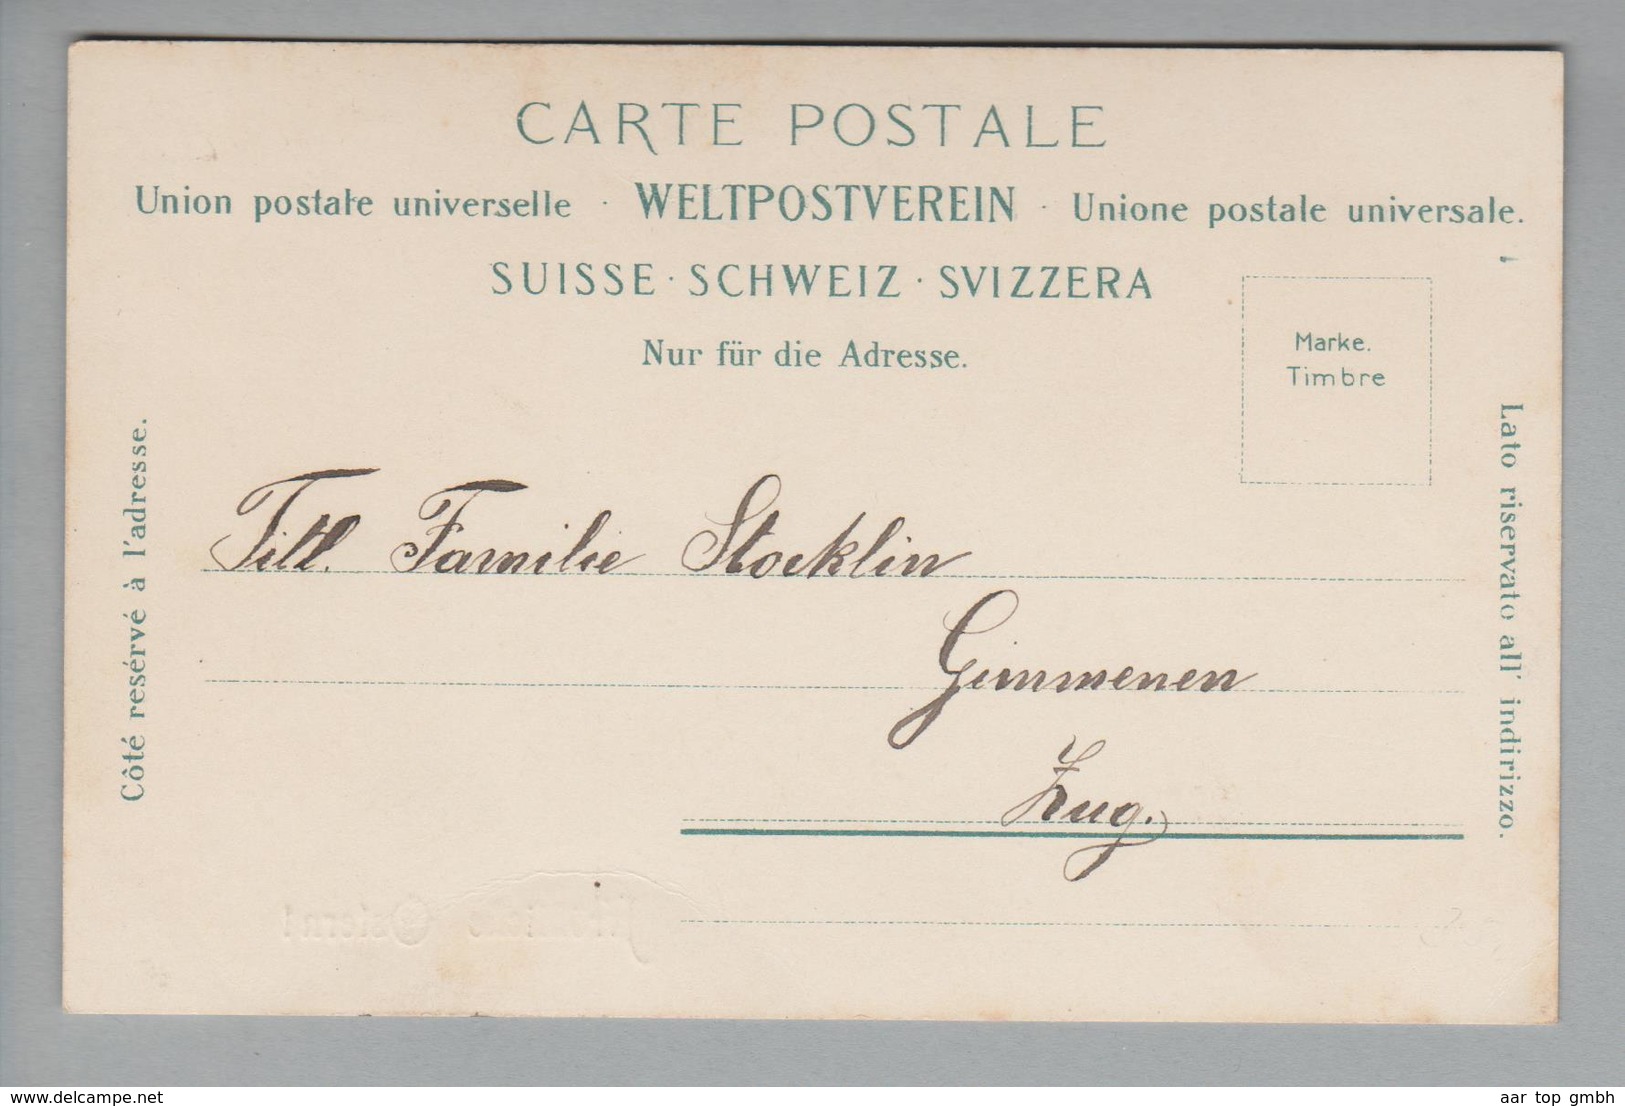 CARTE POSTALE
Union postale universelle · WELTPOSTVEREIN · Unione postale universale.
SUISSE · SCHWEIZ · SVIZZERA
Nur für die Adresse.
Marke.
Timbre
Côté resérvé à l'adresse.
Lato riservato all' indirizzo.
Titl. Familie Stocklin
Gimmenen
Zug.
Fröhliche Ostern!
www.delcampe.net
aar top gmbh